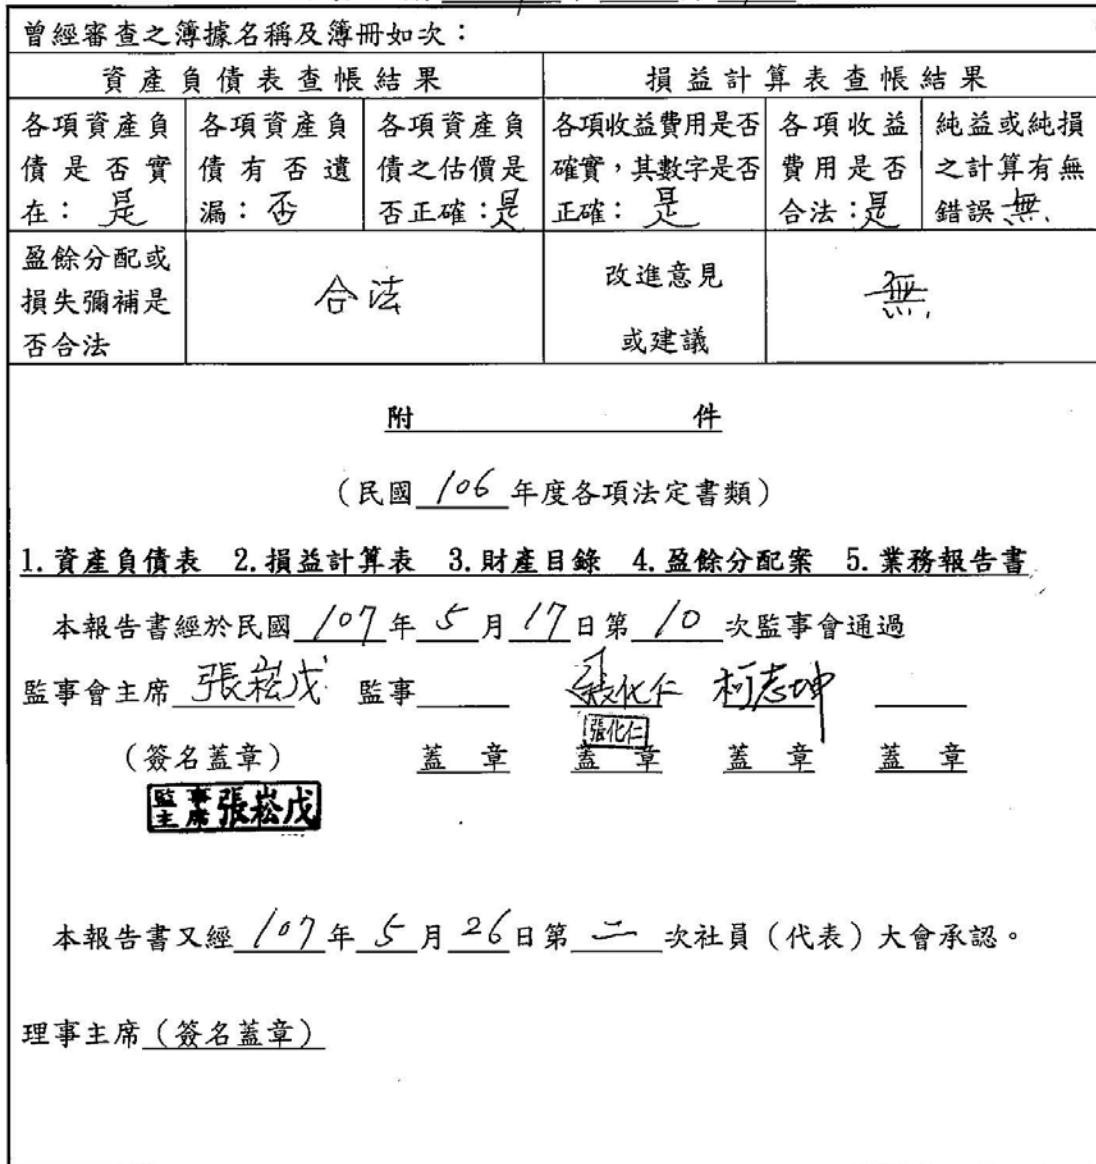 曾經審查之簿據名稱及簿冊如次：
資產負債表查帳結果 損益計算表查帳結果
各項資產負債是否實在：是
各項資產負債有否遺漏：否
各項資產負債之估價是否正確：是
各項收益費用是否確實，其數字是否正確：是
各項收益費用是否合法：是
純益或純損之計算有無錯誤 無.
盈餘分配或損失彌補是否合法 合法
改進意見或建議 無
附 件
（民國 106 年度各項法定書類）
1.資產負債表 2.損益計算表 3.財產目錄 4.盈餘分配案 5.業務報告書
本報告書經於民國 107 年 5 月 17 日第 10 次監事會通過
監事會主席 張崧戊 監事 張化仁 柯志坤
張化仁
（簽名蓋章） 蓋 章 蓋 章 蓋 章 蓋 章
監事主席 張崧戊
本報告書又經 107 年 5 月 26 日第 二 次社員（代表）大會承認。
理事主席（簽名蓋章）